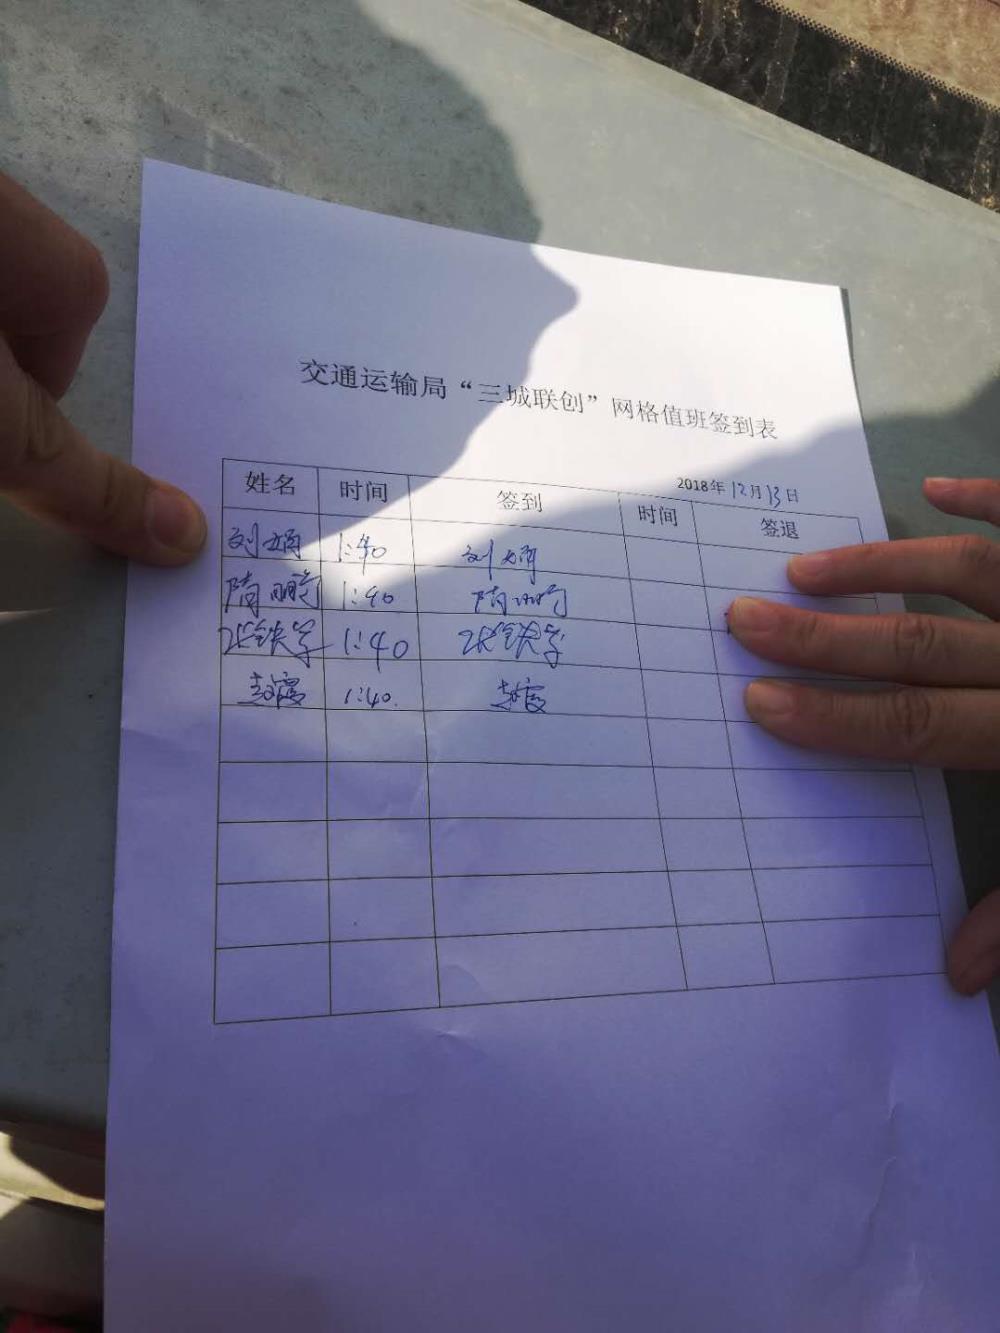 交通运输局“三城联创”网格值班签到表
2018年12月13日
姓名 时间 签到 时间 签退
刘娟 1:40 刘娟
隋 1:40 隋
张铁学 1:40 张铁学
赵霞 1:40. 赵霞